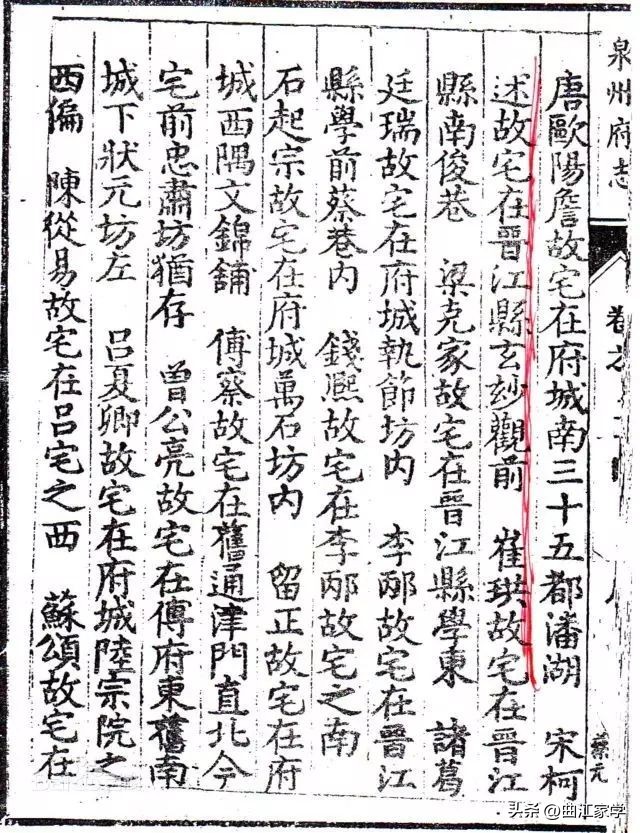 泉州府志
卷之
蔡元
唐歐陽詹故宅在府城南三十五都潘湖 宋柯
述故宅在晉江縣玄妙觀前 崔拱故宅在晉江
縣南俊巷 梁克家故宅在晉江縣學東 諸葛
廷瑞故宅在府城執節坊內 李邴故宅在晉江
縣學前蔡巷內 錢熙故宅在李邴故宅之南
石起宗故宅在府城萬石坊內 留正故宅在府
城西隅文錦舖 傅察故宅在舊通津門直北今
宅前忠肅坊猶存 曾公亮故宅在傅府東舊南
城下狀元坊左 呂夏卿故宅在府城陸宗院之
西偏 陳從易故宅在呂宅之西 蘇頌故宅在
头条@曲江家学